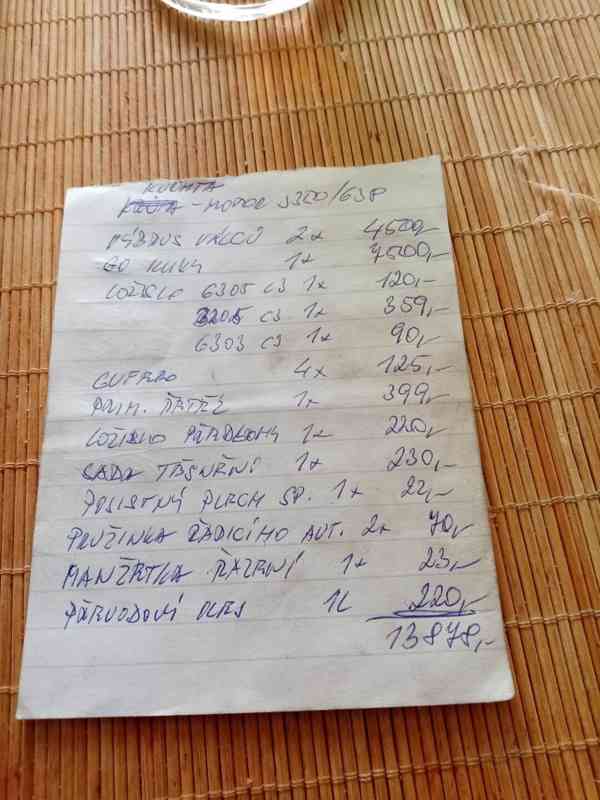 KUCHTA
- MOTOR J350/638
VÝBRUS VÁLCŮ 2x 4500,-
GO KLIKY 1x 7500,-
LOŽISKO 6305 C3 1x 120,-
3205 C3 1x 359,-
6303 C3 1x 90,-
GUFERO 4x 125,-
PRIM. ŘETĚZ 1x 399,-
LOŽISKO PŘEVODOVKY 1x 220,-
SADA TĚSNĚNÍ 1x 230,-
POJISTNÝ PLECH SP. 1x 22,-
PRUŽINKA ŘADICÍHO AUT. 2x 70,-
MANŽETKA ŘAZENÍ 1x 23,-
PŘEVODOVÝ OLEJ 1L 220,-
13878,-